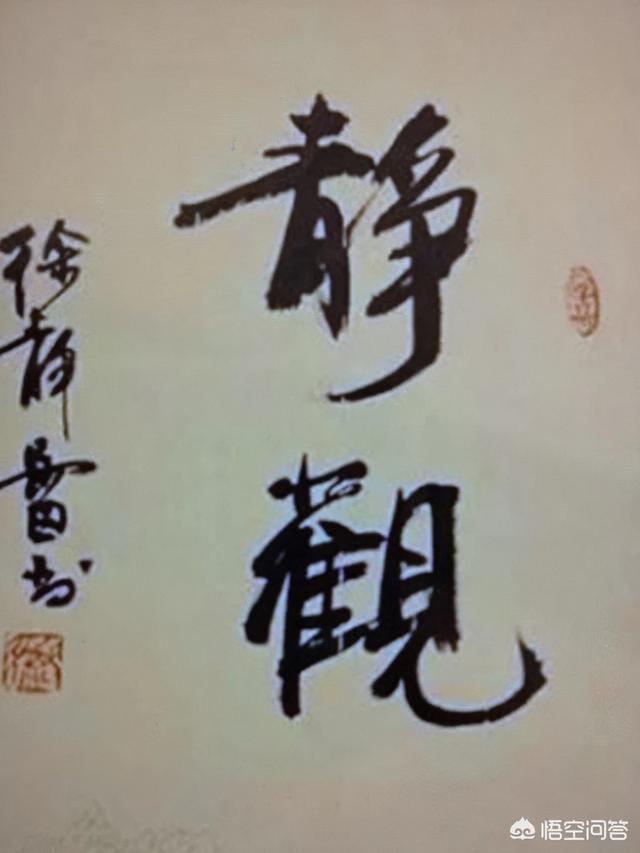 靜觀
徐静蕾书
悟空问答